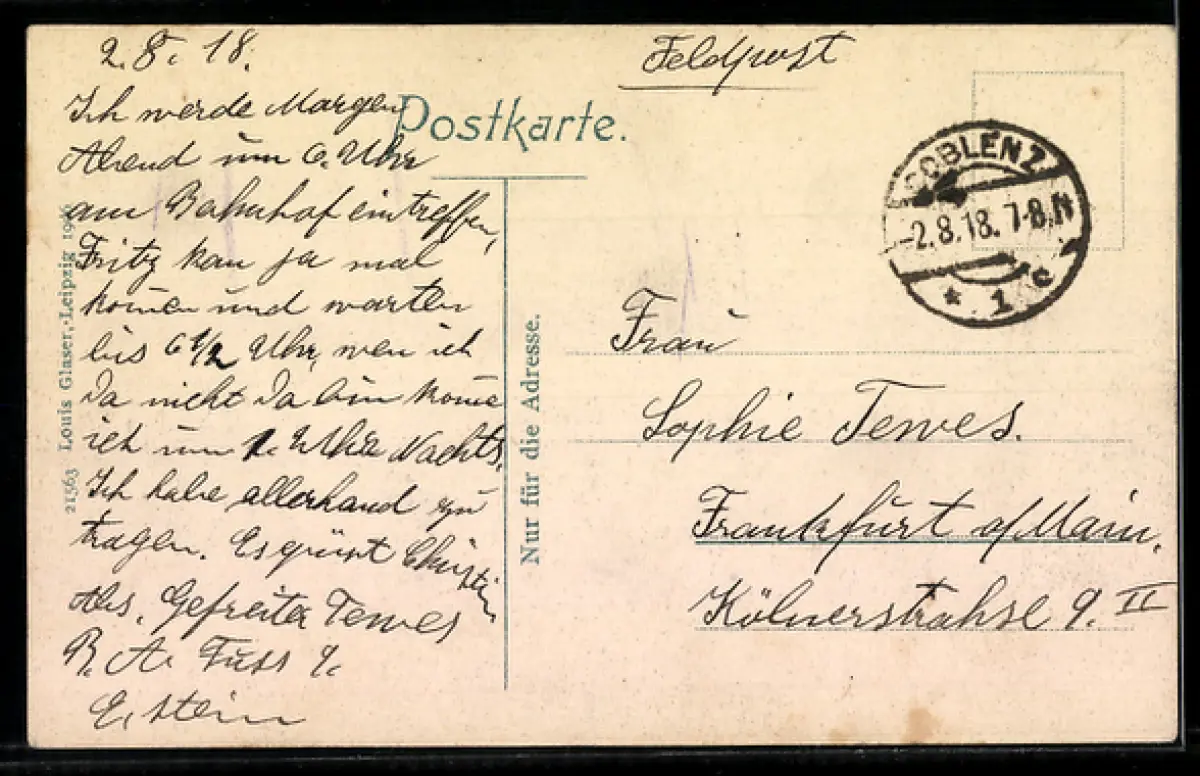 2.8.18.
Ich werde Morgen
Abend um 6. Uhr
am Bahnhof eintreffen,
Fritz kan ja mal
komen und warten
bis 6 1/2 Uhr, wen ich
Da nicht Da bin kome
ich um 1. Uhr Nachts.
Ich habe allerhand zu
tragen. Es grüst Christian
Abs. Gefreiter Tewes
R. A. Fuss 9.
E. stein
21563 Louis Glaser,-Leipzig
Feldpost
Postkarte.
Nur für die Adresse.
COBLENZ
-2.8.18. 7-8.N
* 1 c
Frau
Sophie Tewes.
Frankfurt a/Main.
Kölnerstrahse 9. II